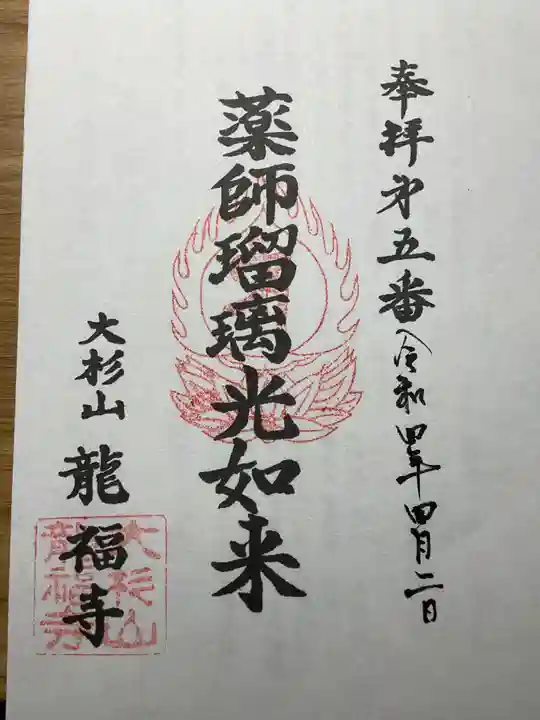 奉拝 㐧五番 令和四年四月二日
薬師瑠璃光如来
大杉山 龍福寺
大杉山
龍福寺